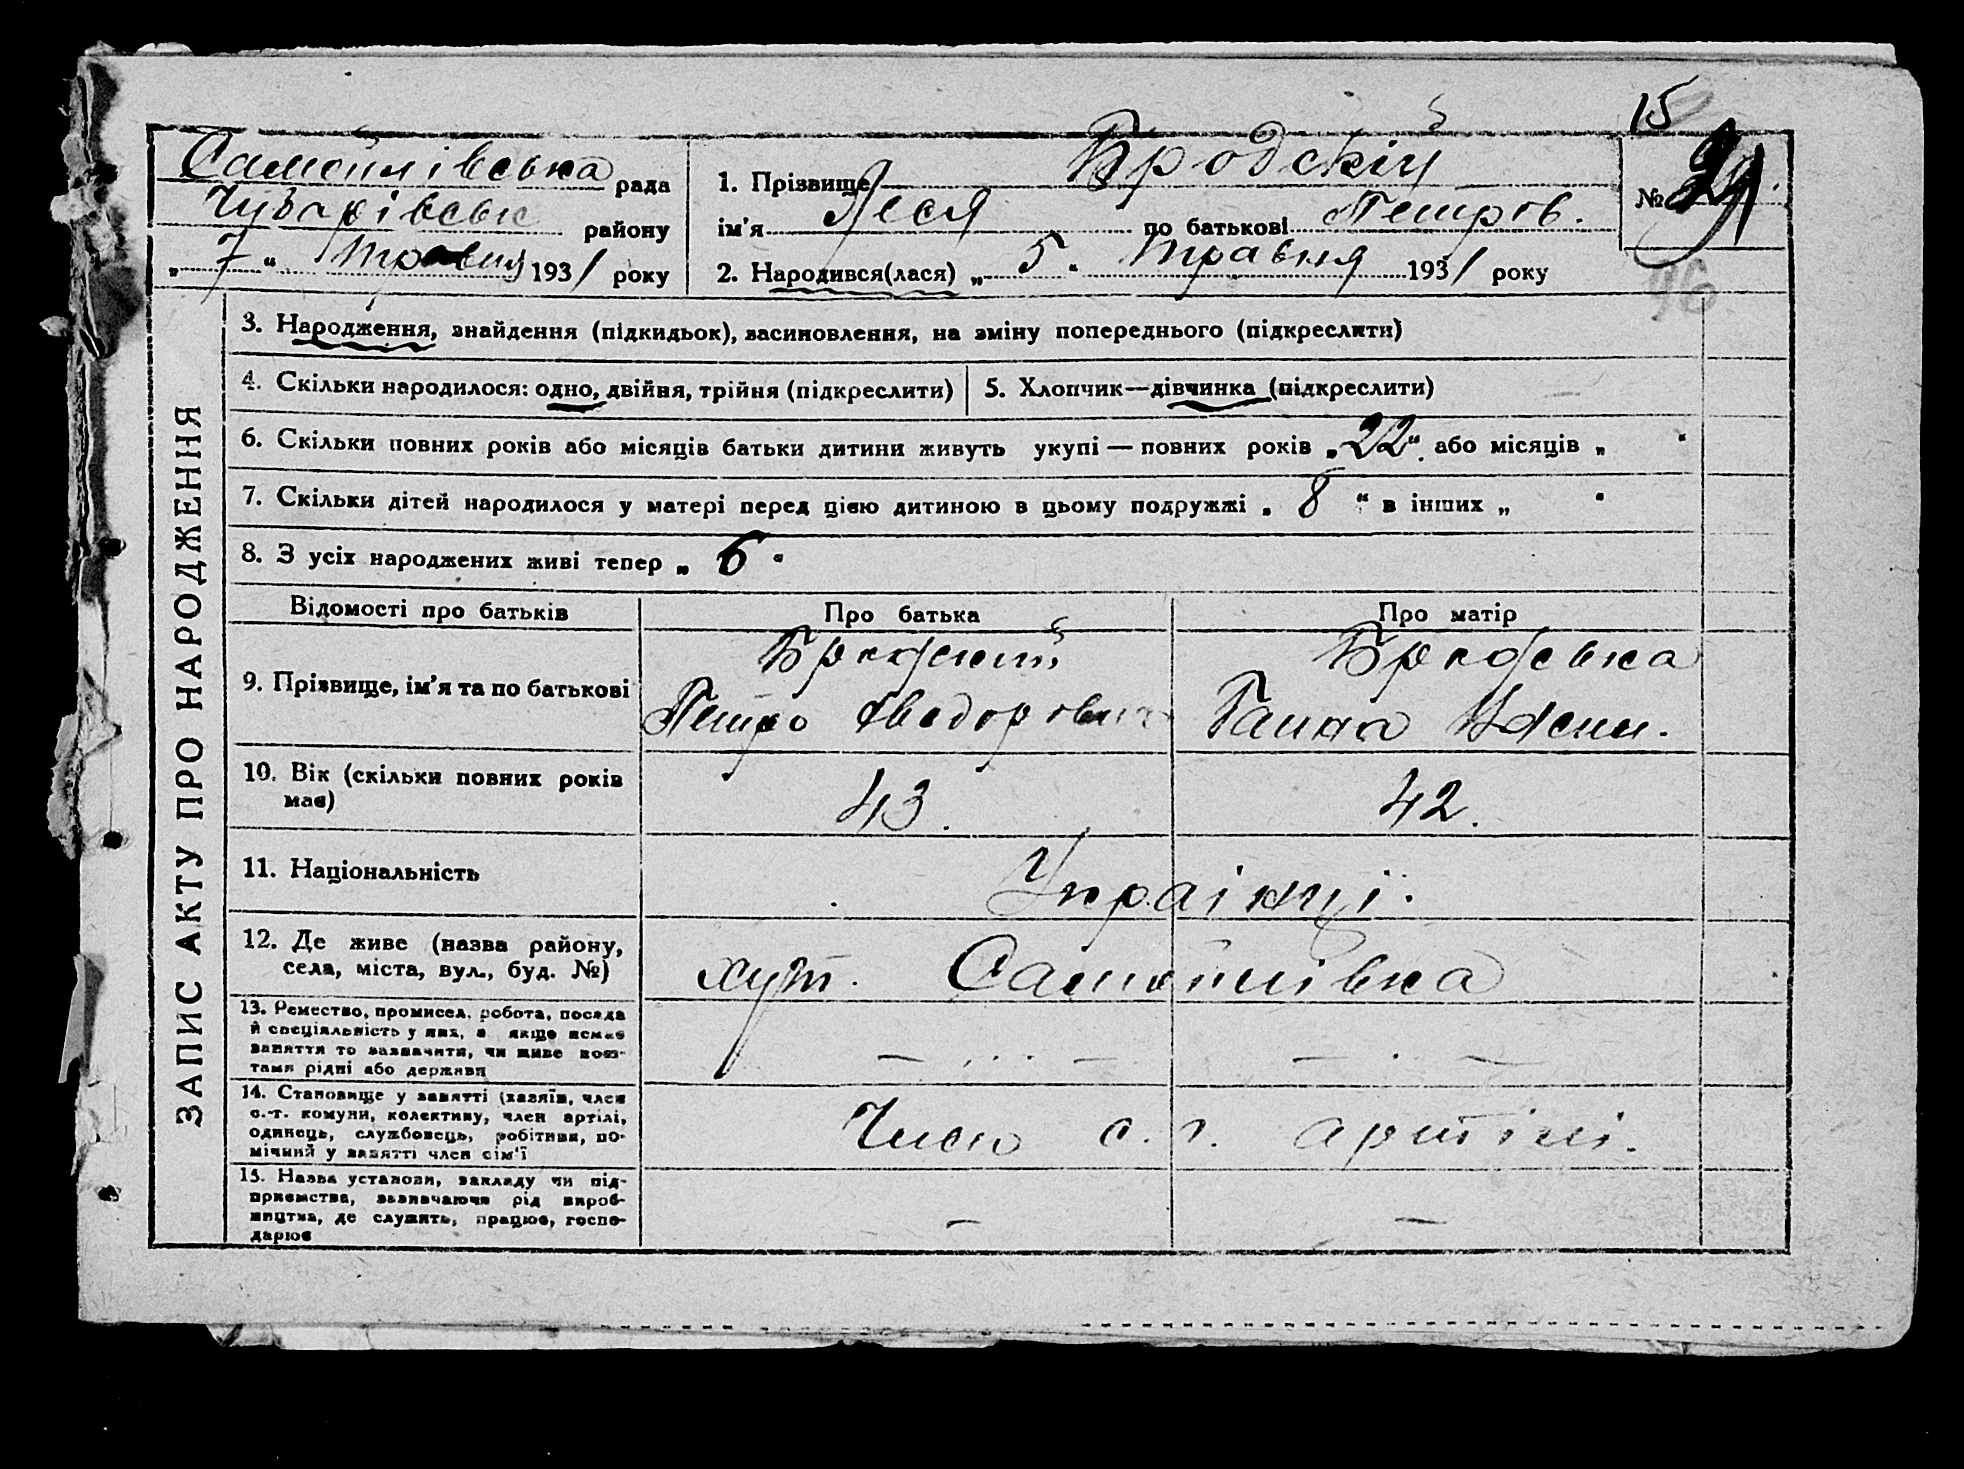 15
Самойлівська рада
Чубарівськ району
„ 7 “ травня 1931 року
1. Прізвище Бродскій
ім'я Леся по батькові Петров.
2. Народився(лася) „ 5 “ травня 1931 року
№ 21
16
ЗАПИС АКТУ ПРО НАРОДЖЕННЯ
3. Народження, знайдення (підкидьок), засиновлення, на зміну попереднього (підкреслити)
4. Скільки народилося: одно, двійня, трійня (підкреслити)
5. Хлопчик—дівчинка (підкреслити)
6. Скільки повних років або місяців батьки дитини живуть укупі — повних років „ 22 “ або місяців „ “
7. Скільки дітей народилося у матері перед цією дитиною в цьому подружжі „ 8 “ в інших „ “
8. З усіх народжених живі тепер „ 6 “
Відомості про батьків
Про батька
Про матір
9. Прізвище, ім'я та по батькові
Бродский
Петро Федорович
Бродська
Ганна
10. Вік (скільки повних років
має)
43.
42.
11. Національність
Украінці.
12. Де живе (назва району,
села, міста, вул., буд. №)
хут. Самойлівка
13. Ремество, промисел, робота, посада
й спеціяльність у них, а якщо немає
заняття то зазначити, чи живе кош-
тами рідні або держави
— —
— —
14. Становище у занятті (хазяїн, член
с.-г. комуни, колективу, член артілі,
одинець, службовець, робітник, по-
мічний у занятті член сім'ї
Член с. г. артілі.
15. Назва установи, закладу чи під-
приємства, зазначаючи рід вироб-
ництва, де служить, працює, госпо-
дарює
—
—